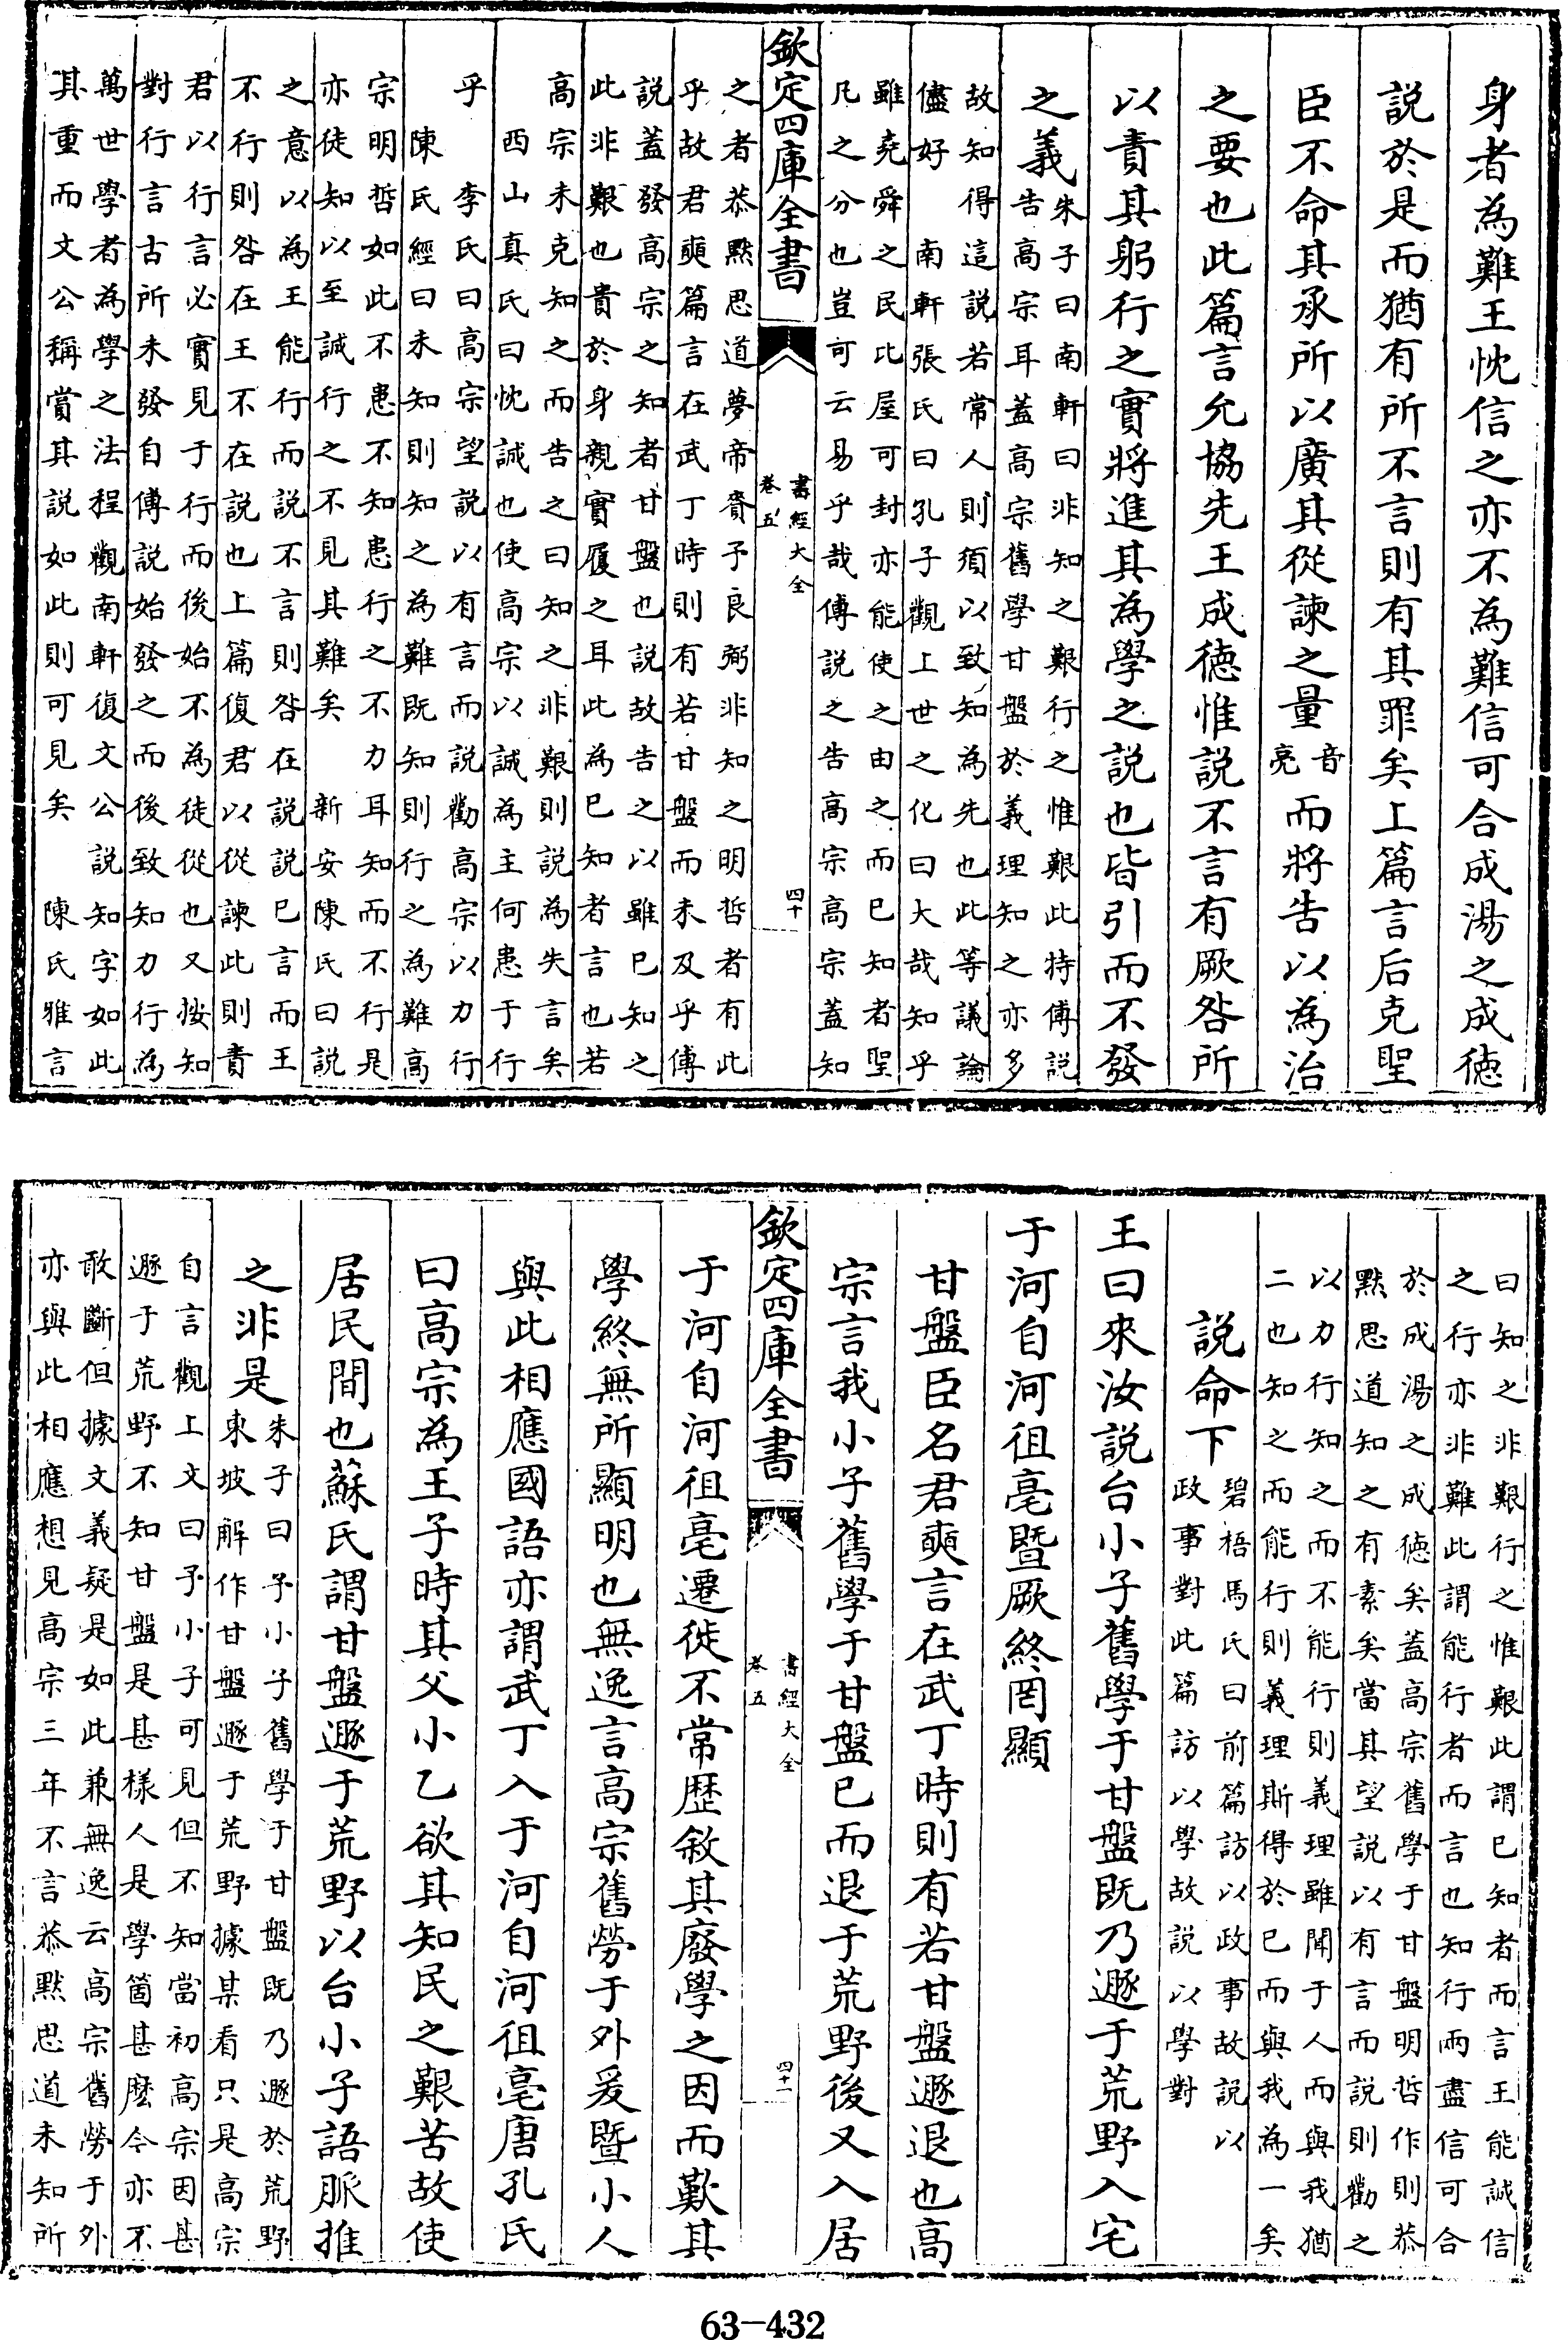 身者為難王忱信之亦不為難信可合成湯之成徳
說於是而猶有所不言則有其罪矣上篇言后克聖
臣不命其承所以廣其從諫之量音亮而將告以為治
之要也此篇言允協先王成徳惟說不言有厥咎所
以責其躬行之實將進其為學之說也皆引而不發
之義朱子曰南軒曰非知之艱行之惟艱此特傅說
告高宗耳蓋高宗舊學甘盤於義理知之亦多
故知得這說若常人則須以致知為先也此等議論
儘好　南軒張氏曰孔子觀上世之化曰大哉知乎
雖堯舜之民比屋可封亦能使之由之而已知者聖
凡之分也豈可云易乎哉傅說之告高宗高宗蓋知
欽定四庫全書
書經大全
卷五
四十
之者恭默思道夢帝賚予良弼非知之明哲者有此
乎故君奭篇言在武丁時則有若甘盤而未及乎傅
說蓋發高宗之知者甘盤也說故告之以雖已知之
此非艱也貴於身親實履之耳此為已知者言也若
高宗未克知之而告之曰知之非艱則說為失言矣
西山真氏曰忱誠也使高宗以誠為主何患于行
乎　李氏曰高宗望說以有言而說勸高宗以力行
陳氏經曰未知則知之為難既知則行之為難高
宗明哲如此不患不知患行之不力耳知而不行是
亦徒知以至誠行之不見其難矣　新安陳氏曰說
之意以為王能行而說不言則咎在說說已言而王
不行則咎在王不在說也上篇復君以從諫此則責
君以行言必實見于行而後始不為徒從也又按知
對行言古所未發自傅說始發之而後致知力行為
萬世學者為學之法程觀南軒復文公說知字如此
其重而文公稱賞其說如此則可見矣　陳氏雅言
曰知之非艱行之惟艱此謂已知者而言王能誠信
之行亦非難此謂能行者而言也知行兩盡信可合
於成湯之成徳矣蓋高宗舊學于甘盤明哲作則恭
默思道知之有素矣當其望說以有言而說則勸之
以力行知之而不能行則義理雖聞于人而與我猶
二也知之而能行則義理斯得於已而與我為一矣
說命下碧梧馬氏曰前篇訪以政事故說以
政事對此篇訪以學故說以學對
王曰來汝說台小子舊學于甘盤既乃遯于荒野入宅
于河自河徂亳暨厥終罔顯
甘盤臣名君奭言在武丁時則有若甘盤遯退也高
宗言我小子舊學于甘盤已而退于荒野後又入居
欽定四庫全書
書經大全
卷五
四十一
于河自河徂亳遷徙不常歷敘其廢學之因而歎其
學終無所顯明也無逸言高宗舊勞于外爰暨小人
與此相應國語亦謂武丁入于河自河徂亳唐孔氏
曰高宗為王子時其父小乙欲其知民之艱苦故使
居民間也蘇氏謂甘盤遯于荒野以台小子語脈推
之非是朱子曰予小子舊學于甘盤既乃遯於荒野
東坡解作甘盤遯于荒野據某看只是高宗
自言觀上文曰予小子可見但不知當初高宗因甚
遯于荒野不知甘盤是甚樣人是學箇甚麽今亦不
敢斷但據文義疑是如此兼無逸云高宗舊勞于外
亦與此相應想見高宗三年不言恭默思道未知所
63-432